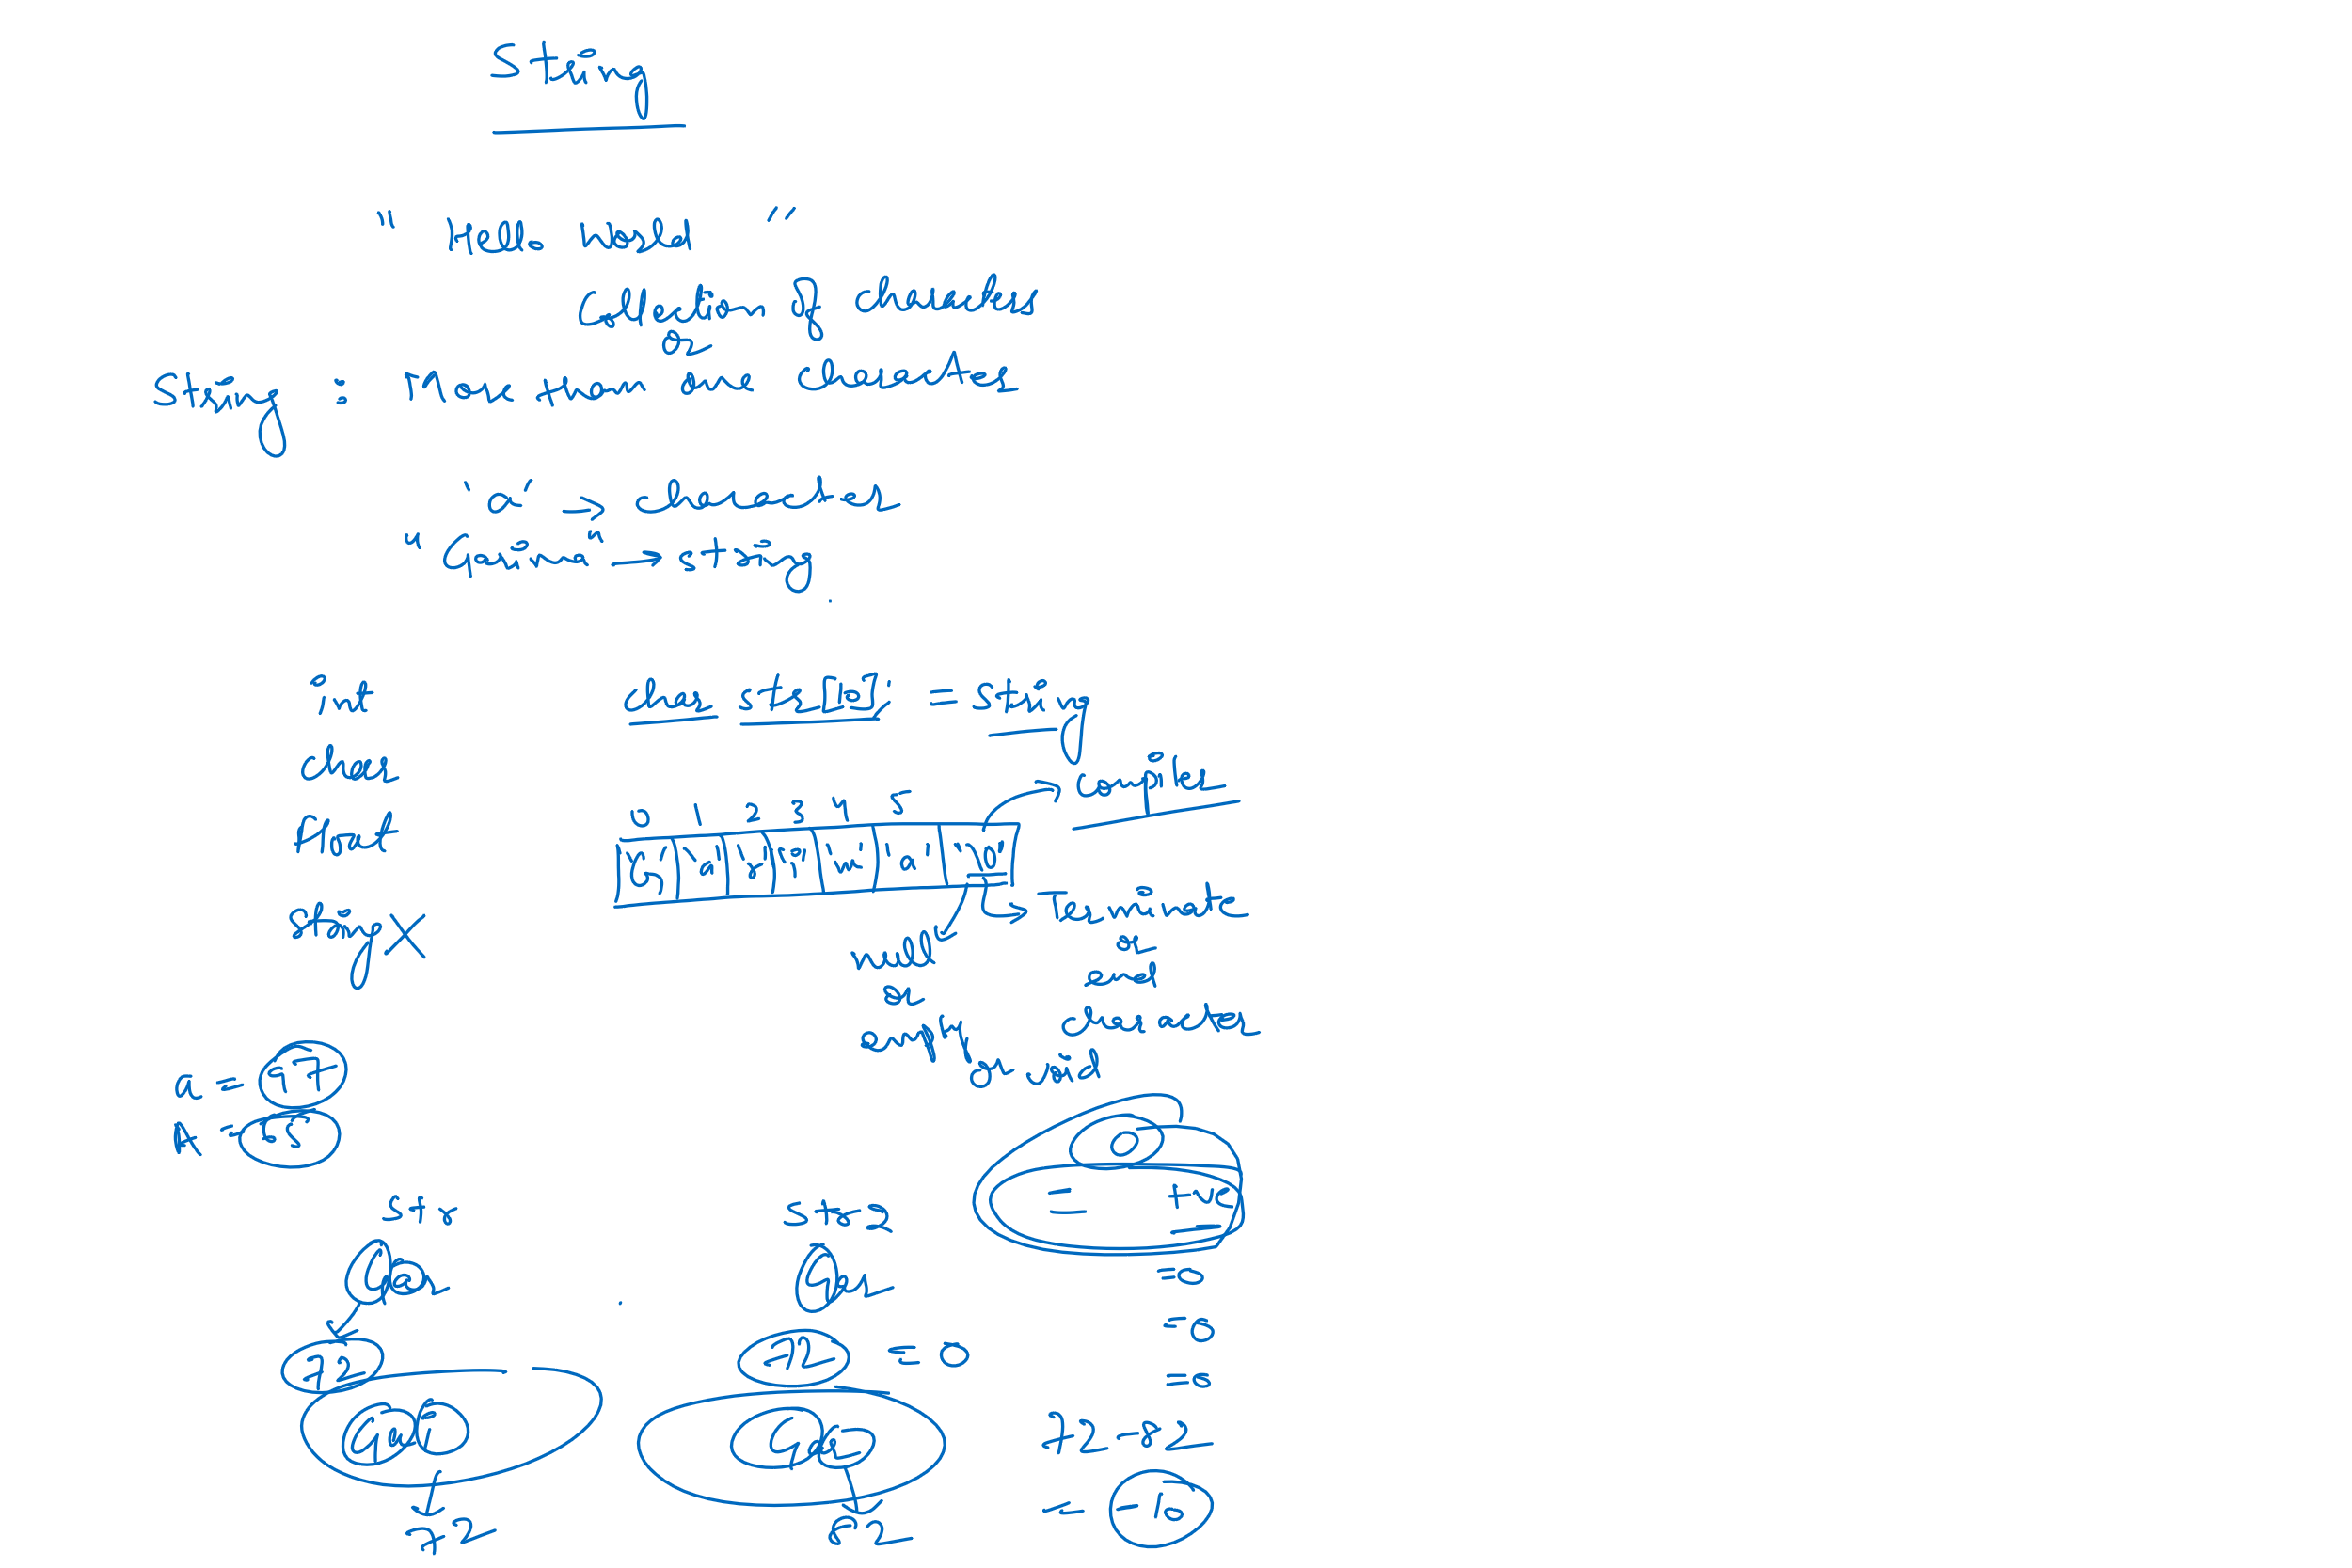 String
" Hello world "
Collection of character
or
String : More than one character
'a' → character
"Garima" → string
int
char
float
string ×
char str[10]; = string
→ compiler
0 1 2 3 4 5
'G' 'a' 'r' 'i' 'm' 'a' '\0'
→ Terminate
or
end
character
null
or
empty
or void
a = 97
A = 65
str
str2
0
= +ve
= 0
= 0
= 0
72
= 0
72
82
72 - 82
= -10